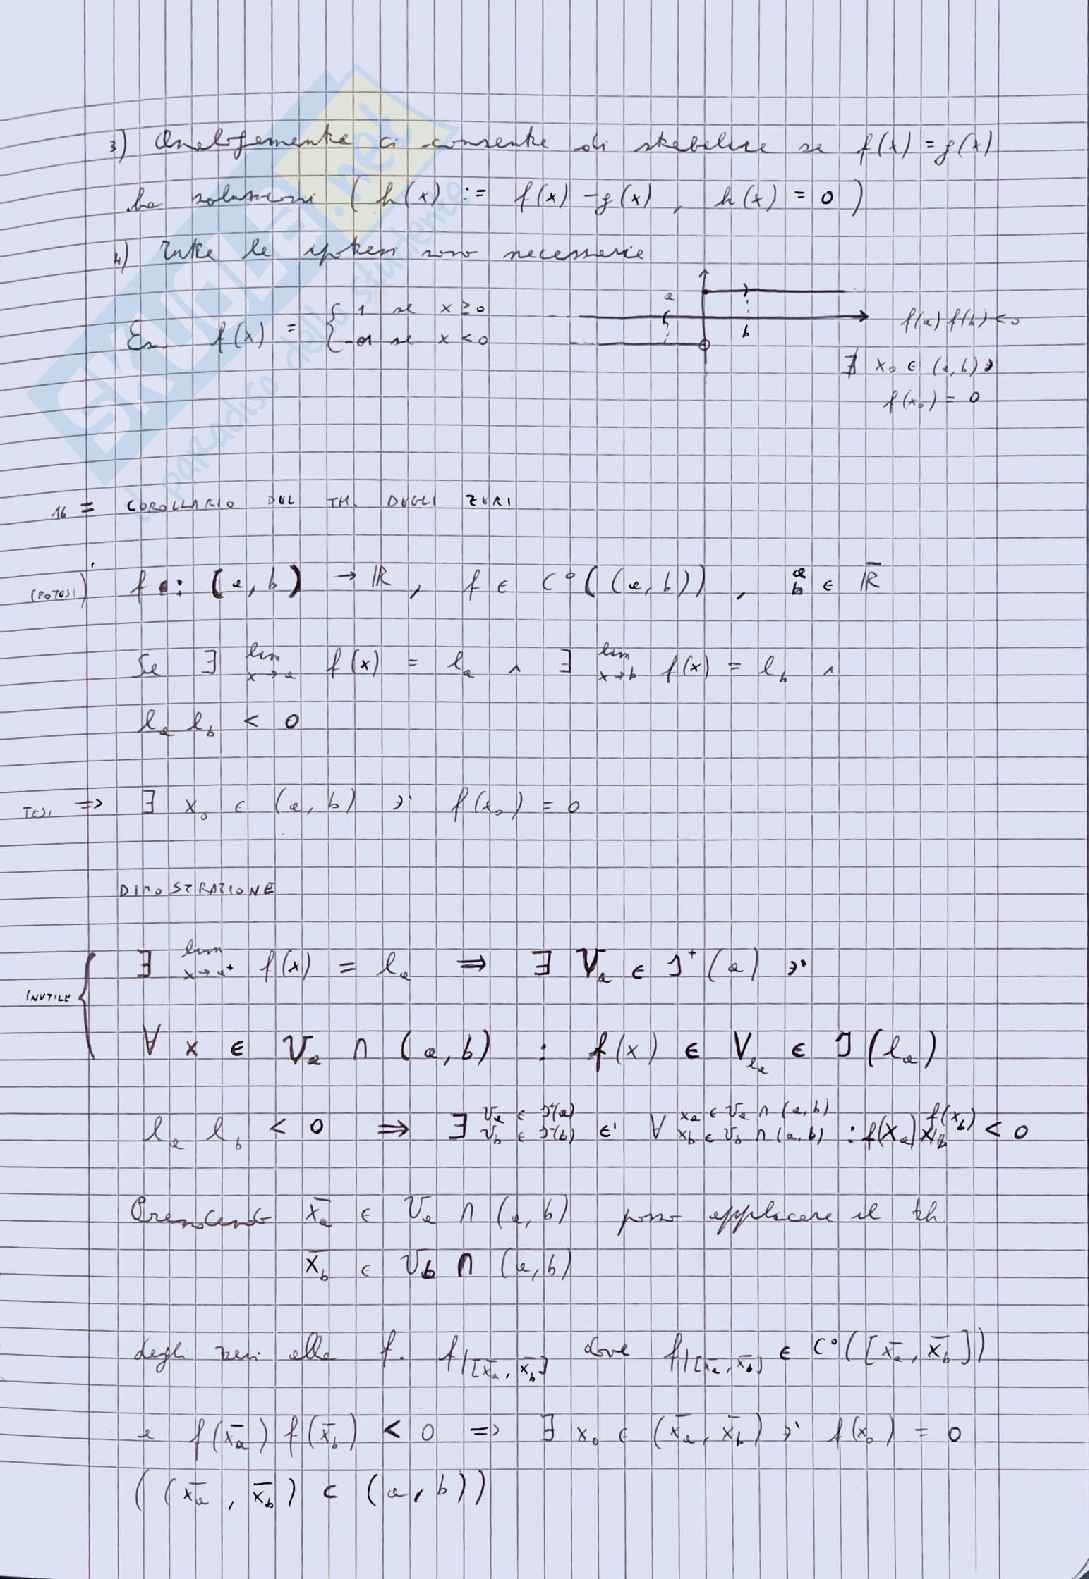 3) Analogamente ci consente di stabilire se f(x) = g(x)
ha soluzioni ( h(x) := f(x) - g(x) , h(x) = 0 )
4) Tutte le ipotesi sono necessarie
Es f(x) = { 1 se x ≥ 0
-1 se x < 0
a
b
f(a) f(b) < 0
∄ x₀ ∈ (a, b) ∋'
f(x₀) = 0
16 = COROLLARIO DEL TH. DEGLI ZERI
IPOTESI) f : (a, b) → ℝ , f ∈ C°((a, b)) , a b ∈ ℝ̄
Se ∃ lim x→a f(x) = lₐ ∧ ∃ lim x→b f(x) = l_b ∧
lₐ l_b < 0
TESI ⇒ ∃ x₀ ∈ (a, b) ∋' f(x₀) = 0
DIMOSTRAZIONE
INUTILE { ∃ lim x→a⁺ f(x) = lₐ ⇒ ∃ Vₐ ∈ I⁺(a) ∋'
∀ x ∈ Vₐ ∩ (a, b) : f(x) ∈ V_lₐ ∈ I(lₐ)
lₐ l_b < 0 ⇒ ∃ Vₐ ∈ I(a) V_b ∈ I(b) ∋' ∀ xₐ ∈ Vₐ ∩ (a, b) x_b ∈ V_b ∩ (a, b) : f(xₐ) f(x_b) < 0
Prendendo x̄ₐ ∈ Vₐ ∩ (a, b) posso applicare il th
x̄_b ∈ V_b ∩ (a, b)
degli zeri alla f. f|[x̄ₐ, x̄_b] dove f|[x̄ₐ, x̄_b] ∈ C°([x̄ₐ, x̄_b])
e f(x̄ₐ) f(x̄_b) < 0 ⇒ ∃ x₀ ∈ (x̄ₐ, x̄_b) ∋' f(x₀) = 0
((x̄ₐ, x̄_b) ⊂ (a, b))
SKUOLA.net
il paradiso dello studente